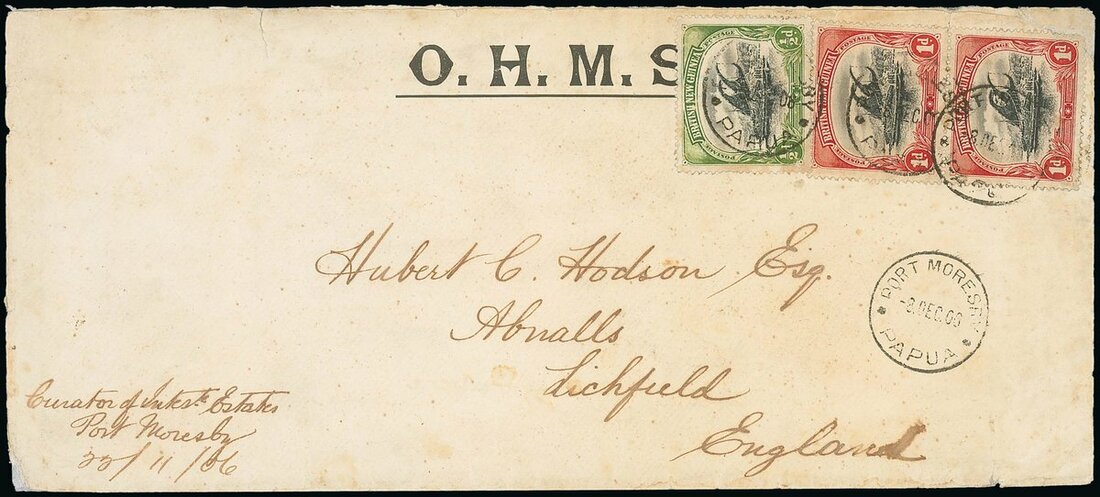 O. H. M. S
½d ½d
BRITISH NEW GUINEA
POSTAGE POSTAGE
1d 1d
BRITISH NEW GUINEA
POSTAGE POSTAGE
1d 1d
BRITISH NEW GUINEA
POSTAGE POSTAGE
PAPUA
Hubert C. Hodson Esq.
Abnalls
Lichfield
England
PORT MORESBY
-8.DEC.06
PAPUA
Curator of Intest. Estates
Port Moresby
22/11/06